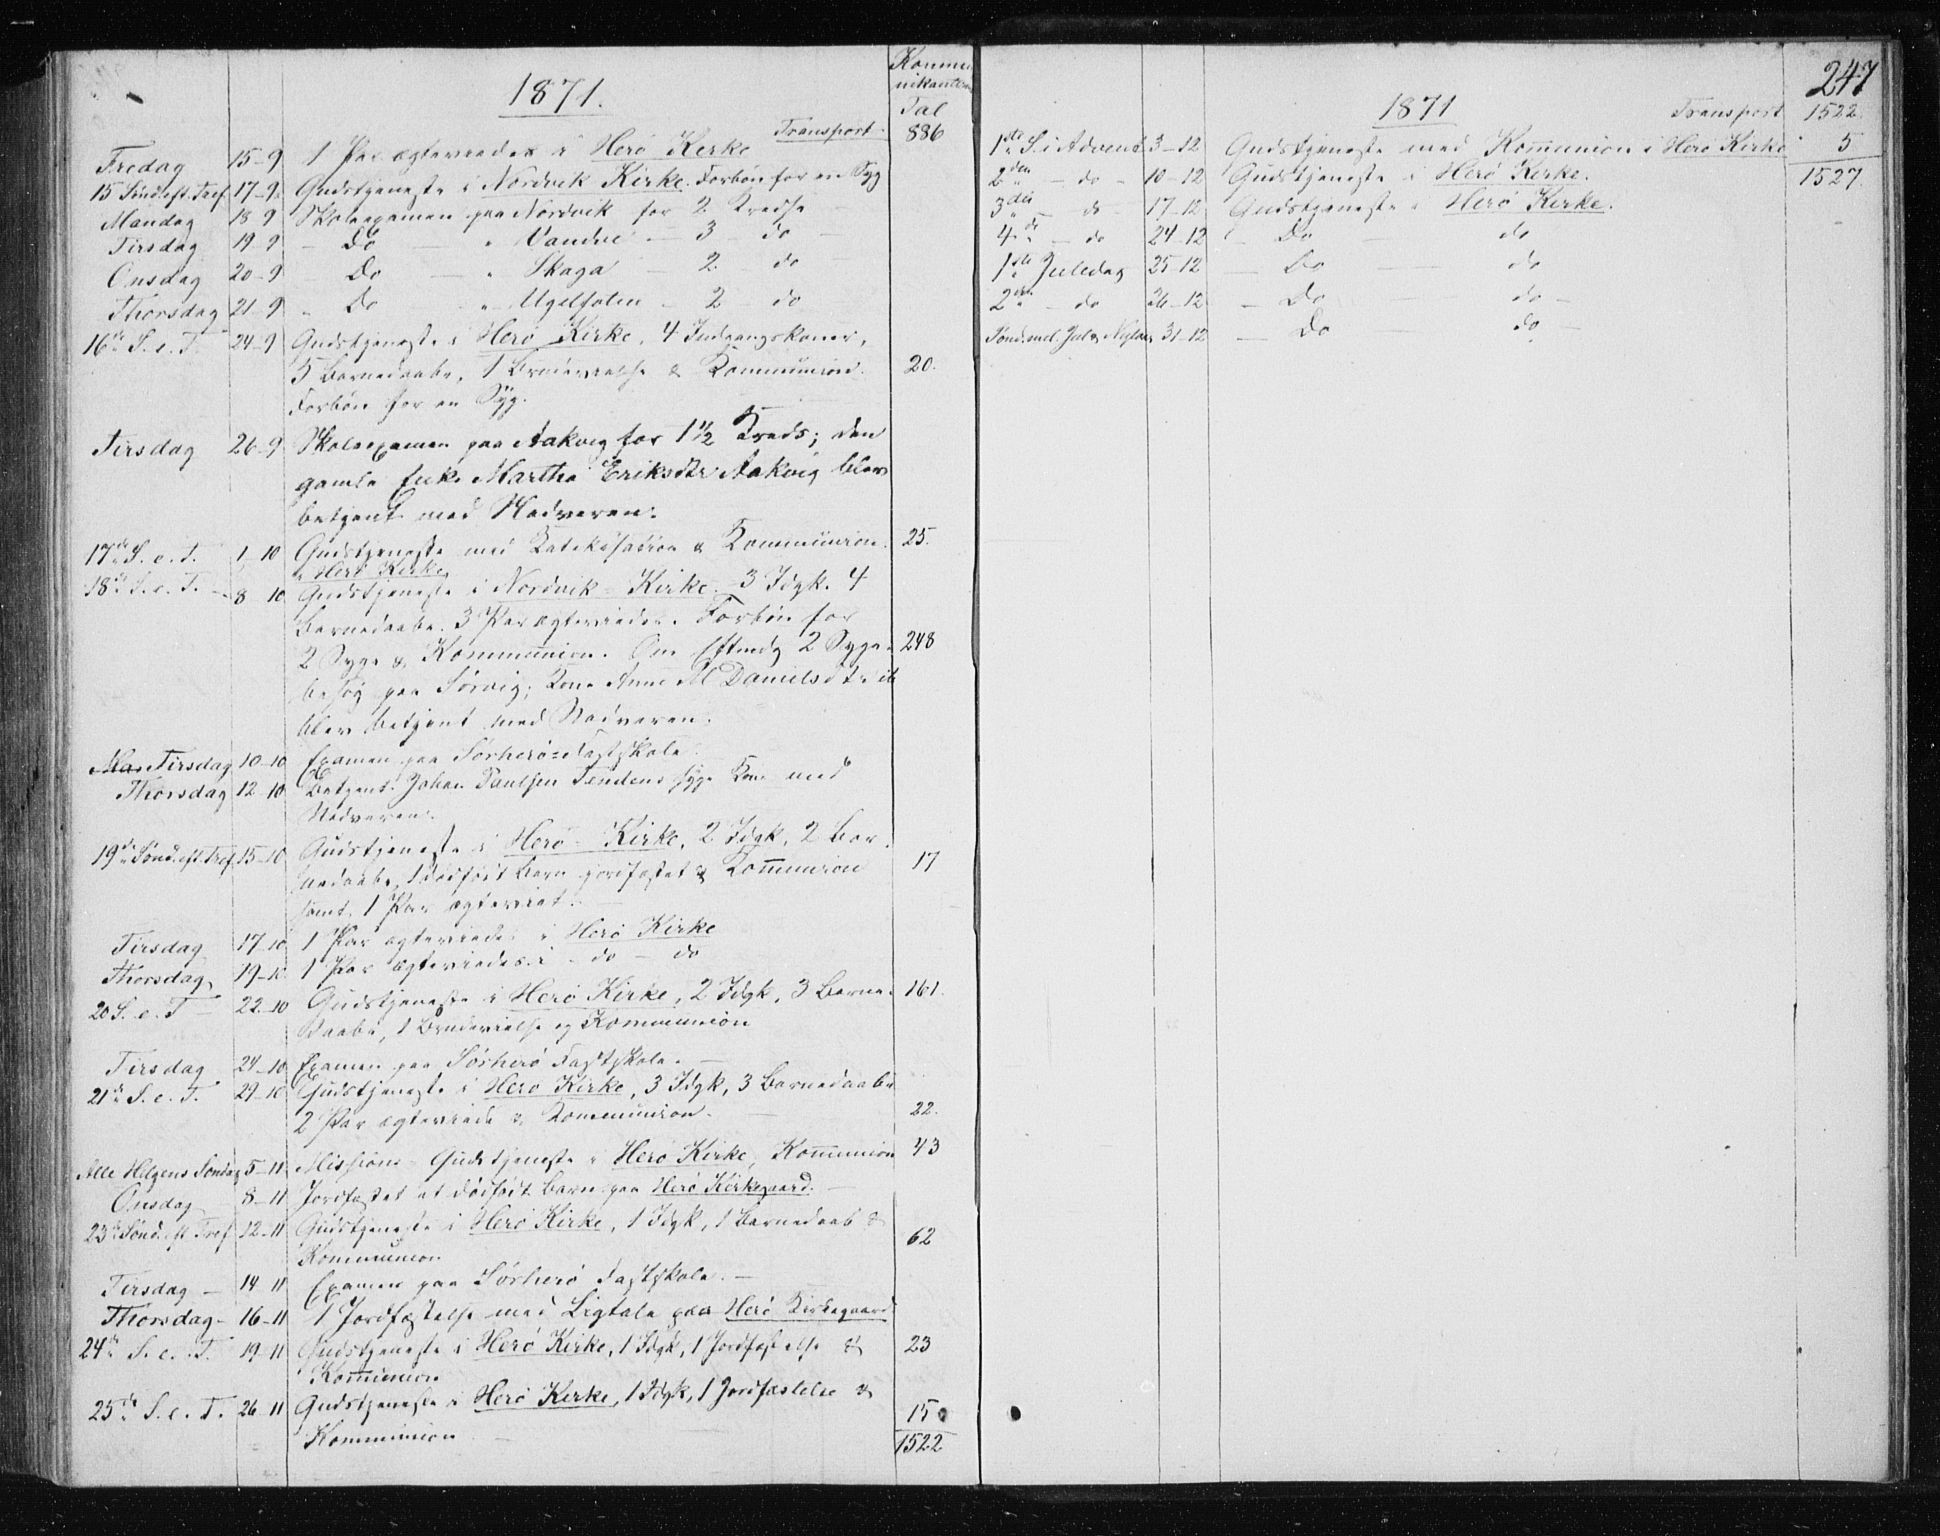 1871.
Kommu-
nikanternes
Tal
Transport 886
Fredag 15-9 1 Par ægteviedes i Herø Kirke
15 Sønd. eft. Tref. 17-9 Gudstjeneste i Nordvik Kirke. Forbøn for en Syg
Mandag 18-9 Skoleexamen paa Nordvik for 2 Kredse
Tirsdag 19-9 - Do - " Vandve - 3 - do -
Onsdag 20-9 Do - " Skaga - 2. do
Thorsdag 21-9 " Do " Ugelsolen - 2 - do
16de S. e. T. 24-9 Gudstjeneste i Herø Kirke, 4 Indgangskoner,
5 Barnedaabe, 1 Brudevielse & Kommunion. 20.
Forbøn for en Syg.
Tirsdag 26-9 Skoleexamen paa Aakvig for 1 1/2 Kreds; den
gamle Enke Martha Eriksdtr Aakvig blev
betjent med Nadveren.
17de S. e. T. 1-10 Gudstjeneste med Katekisation & Kommunion. 25.
i Herø Kirke
18de S. e. T. - 8-10 Gudstjeneste i Nordvik-Kirke. 3 Idgk. 4
Barnedaabe. 3 Par ægteviedes. Forbøn for
2 Syge & Kommunion. Om Eftmdg 2 Syge- 248
besøg paa Sørvig; Kone Anne M Danielsdtr
blev betjent med Nadveren.
Man Tirsdag 10-10 Examen paa Sørherø-Fastskole
Thorsdag 12-10 Betjent Johan Paulsen Tendens syge Kone med
Nadveren.
19de Sønd. eft. Tref. 15-10 Gudstjeneste i Herø-Kirke, 2 Idgk, 2 Bar-
nedaabe, 1 dødfødt Barn jordfæstet & Kommunion 17
samt 1 Par ægteviet.
Tirsdag 17-10 1 Par ægteviedes i Herø Kirke
Thorsdag 19-10 1 Par ægteviedes i - do - do
20 S. e. T - 22-10 Gudstjeneste i Herø Kirke, 2 Idgk, 3 Barne- 161.
daabe, 1 Brudevielse og Kommunion
Tirsdag 24-10 Examen paa Sørherø Fastskole. -
21de S. e. T. 29-10 Gudstjeneste i Herø Kirke, 3 Idgk, 3 Barnedaabe
2 Par ægteviede & Kommunion. - 22.
Alle Helgens Søndag 5-11 Missions-Gudstjeneste i Herø Kirke, Kommunion 43
Onsdag 8-11 Jordfæstet et dødfødt Barn paa Herø Kirkegaard. -
23de Sønd. eft Tref 12-11 Gudstjeneste i Herø Kirke, 1 Idgk, 1 Barnedaab &
Kommunion 62
Tirsdag - 14-11 Examen paa Sørherø Fastskole. -
Thorsdag - 16-11 1 Jordfæstelse med Ligtale paa Herø Kirkegaard
24de S. e. T. 19-11 Gudstjeneste i Herø Kirke, 1 Idgk, 1 Jordfæstelse & 23
Kommunion
25de S. e. T. 26-11 Gudstjeneste i Herø Kirke, 1 Idgk, 1 Jordfæstelse &
Kommunion - 15
1522
247
1871 Transport 1522.
1ste S. i Advent 3-12 Gudstjeneste med Kommunion i Herø Kirke 5
2den " - do - 10-12 Gudstjeneste i Herø Kirke. 1527.
3die " - do - 17-12 Gudstjeneste i Herø Kirke.
4de " - do 24-12 - Do - do
1ste Juledag 25-12 - Do - do
2den " - do 26-12 - Do - do -
Sønd. mel. Jul & Nytaar 31-12 - Do - do -